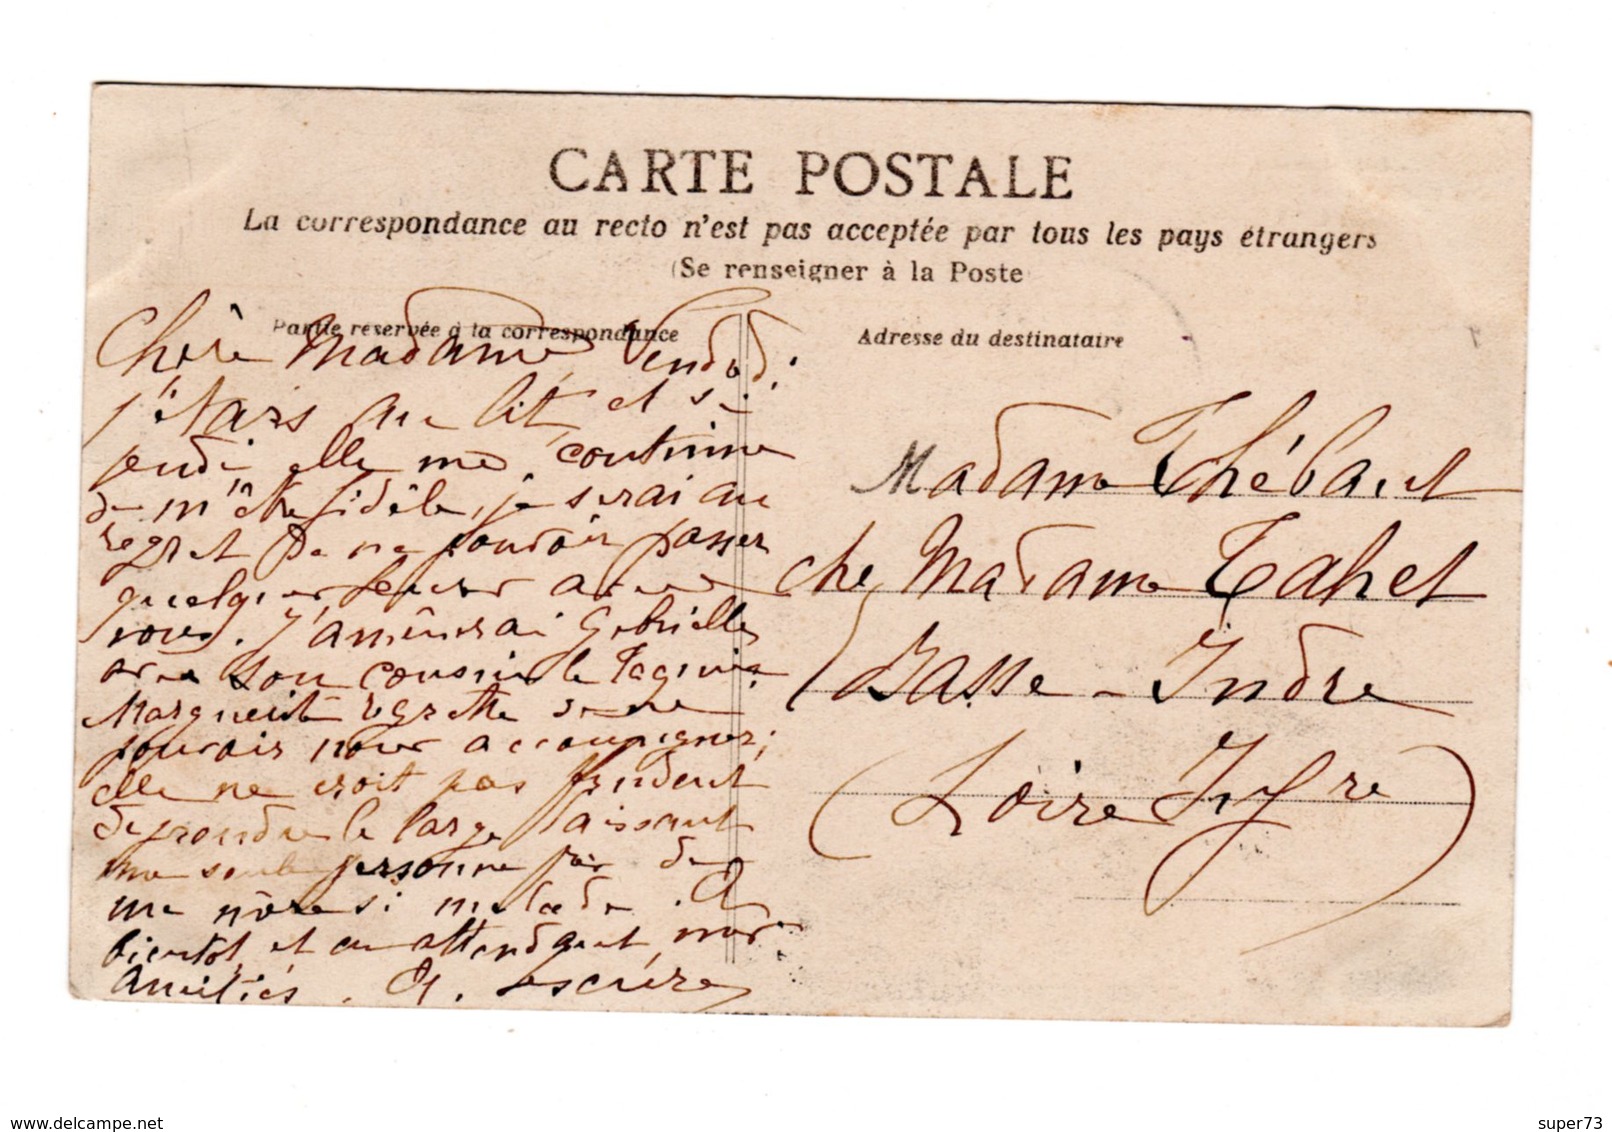 CARTE POSTALE
La correspondance au recto n'est pas acceptée par tous les pays étrangers
(Se renseigner à la Poste
Partie réservée à la correspondance
Adresse du destinataire
Chère Madame, Vendredi
j'étais au lit, et si
jeudi elle me continue
de m'être fidèle, je serai au
regret de ne pouvoir passer
quelques heures avec
vous. J'amènerai Gabrielle
avec son cousin le
Marguerite regrette de ne
pouvoir nous accompagner;
elle ne croit pas prudent
de prendre le large laissant
une seule personne près de
ma mère si malade. A
bientôt, et en attendant, mes
amitiés.
Madame Thébaut
chez Madame Tahet
Basse-Indre
(Loire Infre)
delcampe.net
super73